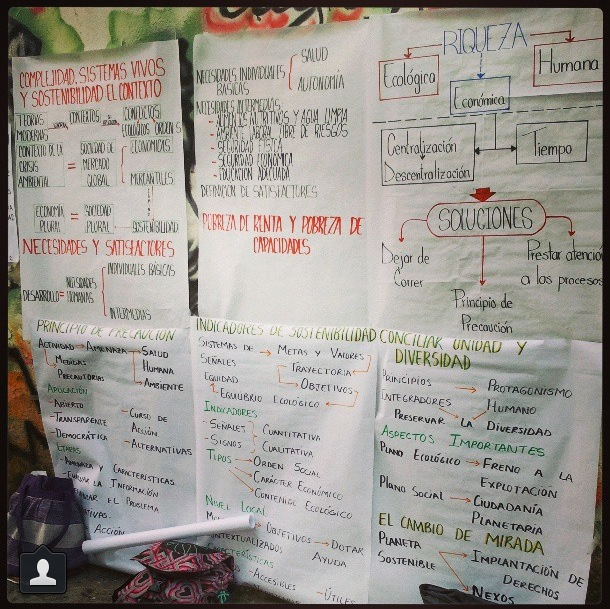 COMPLEJIDAD, SISTEMAS VIVOS
Y SOSTENIBILIDAD EL CONTEXTO
TEORÍAS
MODERNAS
CONTEXTOS
CONFLICTOS
ECOLÓGICOS
CONTEXTO DE LA
CRISIS
AMBIENTAL
=
SOCIEDAD DE
MERCADO
GLOBAL
ECONOMICOS
MERCANTILES
ECONOMÍA
PLURAL
=
SOCIEDAD
PLURAL
SOSTENIBILIDAD
NECESIDADES Y SATISFACTORES
DESARROLLO =
NECESIDADES
HUMANAS
INDIVIDUALES BÁSICAS
INTERMEDIAS
NECESIDADES INDIVIDUALES
BÁSICAS
SALUD
AUTONOMÍA
NECESIDADES INTERMEDIAS
- ALIMENTOS NUTRITIVOS Y AGUA LIMPIA
- AMBIENTE LABORAL LIBRE DE RIESGOS
- SEGURIDAD FÍSICA
- SEGURIDAD ECONÓMICA
- EDUCACIÓN ADECUADA
DEFINICIÓN DE SATISFACTORES
POBREZA DE RENTA Y POBREZA DE
CAPACIDADES
RIQUEZA
Ecológica
Económica
Humana
Centralización
Descentralización
Tiempo
SOLUCIONES
Dejar de
Correr
Principio de
Precaución
Prestar atención
a los procesos
PRINCIPIO DE PRECAUCIÓN
ACTIVIDAD → AMENAZA → SALUD
HUMANA
MEDIDAS
PRECAUTORIAS
AMBIENTE
APLICACIÓN
- ABIERTO
- TRANSPARENTE
- DEMOCRÁTICA
- CURSO DE
ACCIÓN
- ALTERNATIVAS
ETAPAS
- AMENAZA Y CARACTERÍSTICAS
EVALUAR LA INFORMACIÓN
EL PROBLEMA
ACCIÓN
INDICADORES DE SOSTENIBILIDAD
SISTEMAS DE → METAS Y VALORES
SEÑALES
TRAYECTORIA
OBJETIVOS
EQUIDAD
EQUILIBRIO ECOLÓGICO
INDICADORES
- SEÑALES
- SIGNOS
CUANTITATIVA
CUALITATIVA
TIPOS → ORDEN SOCIAL
CARÁCTER ECONÓMICO
CONTENIDO ECOLÓGICO
NIVEL LOCAL
OBJETIVOS → DOTAR
AYUDA
- ACCESIBLES
- ÚTILES
CONCILIAR UNIDAD Y
DIVERSIDAD
PRINCIPIOS → PROTAGONISMO
INTEGRADORES HUMANO
PRESERVAR LA DIVERSIDAD
ASPECTOS IMPORTANTES
PLANO ECOLÓGICO → FRENO A LA
EXPLOTACIÓN
PLANO SOCIAL → CIUDADANÍA
PLANETARIA
EL CAMBIO DE MIRADA
PLANETA
SOSTENIBLE
IMPLANTACIÓN DE
DERECHOS
NEXOS